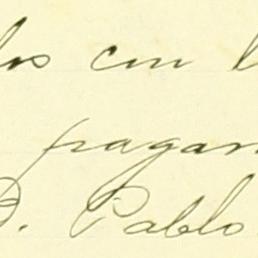 los con l
pagan
D. Pablo